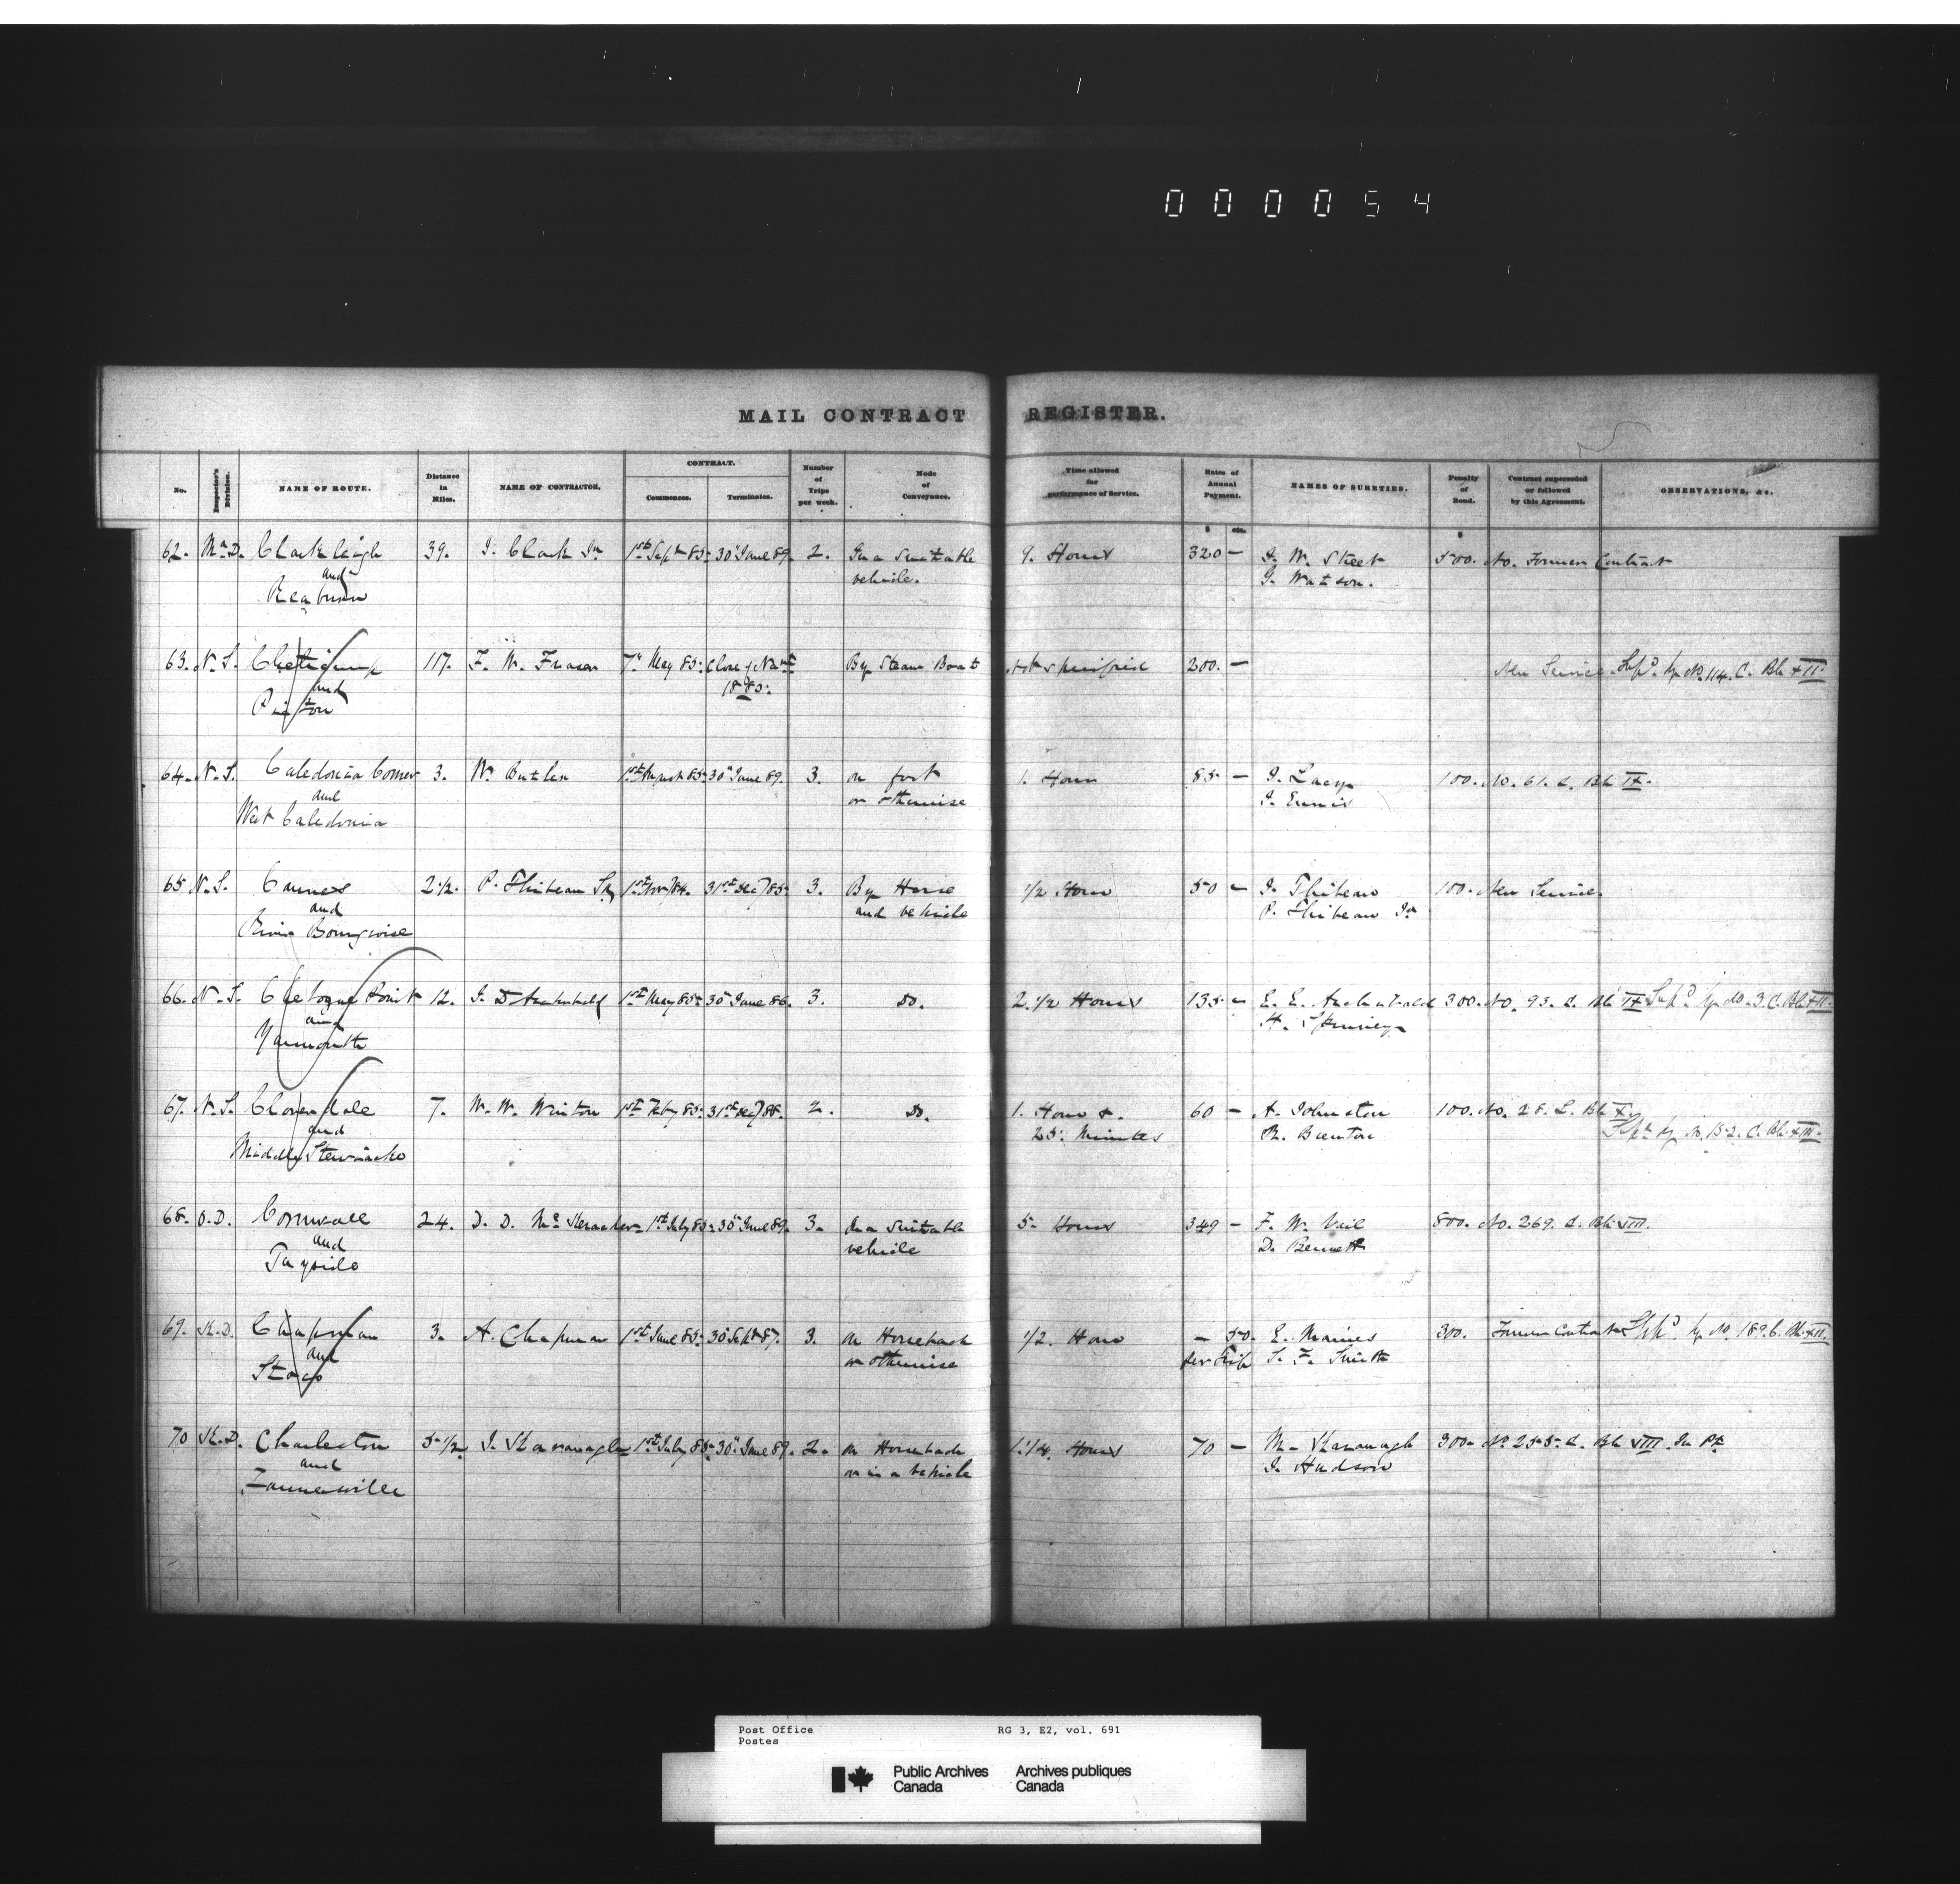 000054
MAIL CONTRACT REGISTER.
No. Inspector's Division. NAME OF ROUTE. Distance in Miles. NAME OF CONTRACTOR. CONTRACT. Commences. Terminates. Number of Trips per week. Mode of Conveyance. Time allowed for performance of Service. Rates of Annual Payment. NAMES OF SURETIES. Penalty of Bond. Contract superseded or followed by this Agreement. OBSERVATIONS, &c.
$ cts. $
62. Mn D. Clarkleigh 39. J. Clark Jr 1st Sept 85 30th June 89. 2. In a suitable 9. Hours 320 — J. W. Street 500. No. Former Contract
and vehicle. G. Watson.
Reaburn
63. N.S. Cheticamp 117. F. W. Fraser 7th May 85 Close of Navt By Steam Boat Not specified 200. — New Service. Supd by No. 114. C. Bk XII
and 1885.
Picton
64. N.S. Caledonia Corner 3. W. Butler 1st August 85 30th June 89. 3. on foot 1. Hour 85 — J. Lacey 100. No. 61. C. Bk IX.
and or otherwise J. Ennis
West Caledonia
65 N.S. Cannes 2 1/2. P. Thibeau Sr 1st Nov/84. 31st Dec/85 3. By Horse 1/2 Hour 50 — J. Thibeau 100. New Service.
and and vehicle P. Thibeau Jr
River Bourgeoise
66. N.S. Chebogue Point 12. J. D. Archibald 1st May 85 30th June 86. 3. Do. 2. 1/2 Hours 135 — E. E. Archibald 300. No. 93. C. Bk IX Supd by No. 3. C. Bk XII
and H. Spinney
Yarmouth
67. N.S. Cloverdale 7. W. W. Winton 1st Feby 85 31st Dec/88. 2. Do. 1. Hour & 60 — A. Johnston 100. No. 28. C. Bk X.
and 25 Minutes R. Brenton Supd by No. 152. C. Bk XIII
Middle Stewiacke
68. O.D. Cornwall 24. D. D. Mc 1st July 85 30th June 89. 3. In a suitable 5 Hours 349 — F. W. Vail 800. No. 269. C. Bk VIII.
and vehicle D. Bennett
Tayside
69. K.D. Chapman 3. A. Chapman 1st June 85 30 Sept 87. 3. on Horseback 1/2. Hour — 50. E. Maines 300. Former Contract Supd by No. 189. C. Bk XII.
and or otherwise per trip S. F. Smith
Stoco
70 K.D. Charleston 5 1/2 J. Kavanagh 1st July 85 30th June 89. 2. on Horseback 1 1/4. Hours 70 — M. Kavanagh 300 No 255. C. Bk VIII. In Pt
and or in a vehicle J. Hudson
Farmersville
Post Office RG 3, E2, vol. 691
Postes
Public Archives Archives publiques
Canada Canada